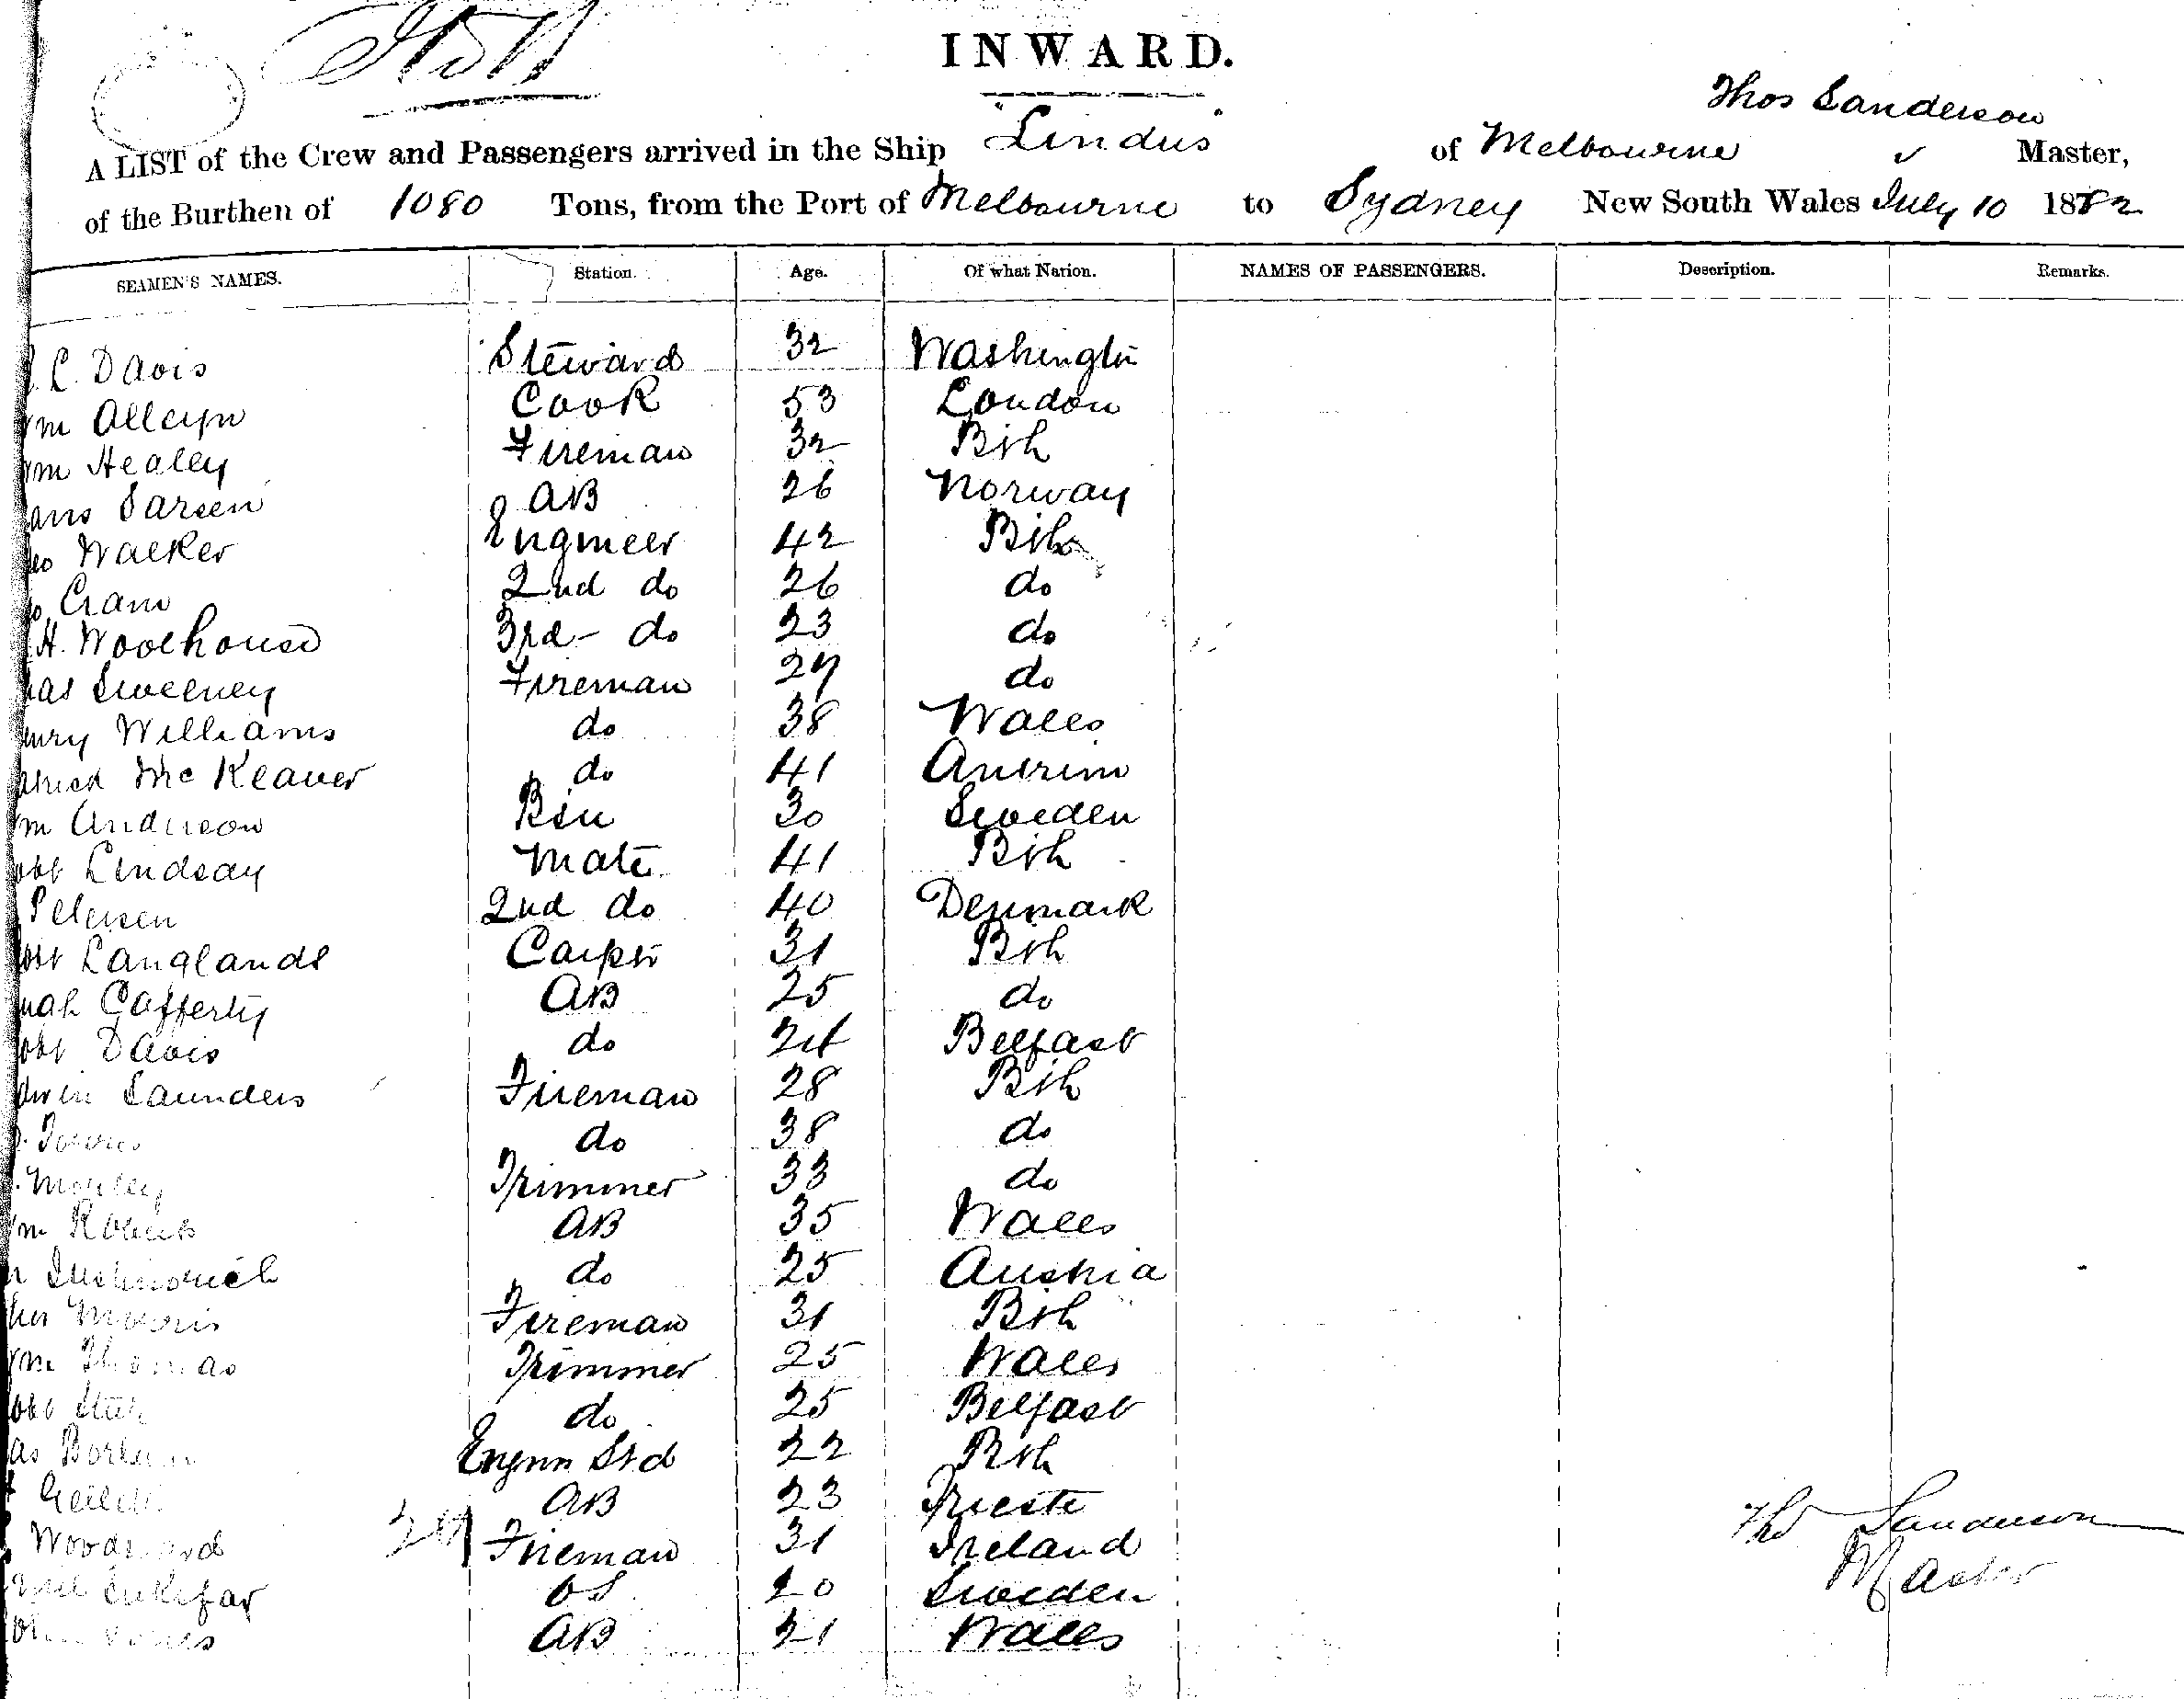 INWARD.
Thos Sanderson
A LIST of the Crew and Passengers arrived in the Ship "Lindus" of Melbourne Master,
of the Burthen of 1080 Tons, from the Port of Melbourne to Sydney New South Wales July 10 1882
SEAMEN'S NAMES. Station. Age. Of what Nation. NAMES OF PASSENGERS. Description. Remarks.
C. Davis Steward 32 Washington
Wm Alleyn Cook 53 London
Wm Healey Fireman 32 Bsh
Larsen AB 26 Norway
Geo Walker Engineer 42 Bsh
Cram 2nd do 26 do
H. Woolhouse 3rd do 23 do
Sweeney Fireman 27 do
Henry Williams do 38 Wales
Patrick McKeaver do 41 Antrim
Wm Anderson Bsn 30 Sweden
Robt Lindsay Mate 41 Bsh
Petersen 2nd do 40 Denmark
Robt Langlands Carptr 31 Bsh
Hugh Cafferty AB 25 do
Robt Davis do 24 Belfast
Edwin Saunders Fireman 28 Bsh
do 38 do
Morley Trimmer 33 do
Wm Roberts AB 35 Wales
do 25 Austria
Morris Fireman 31 Bsh
Wm Thomas Trimmer 25 Wales
Robt do 25 Belfast
Engnrs Std 22 Bsh
AB 23 Trieste
Woodward Fireman 31 Ireland
OS 20 Sweden
AB 21 Wales
Thos Sanderson
Master